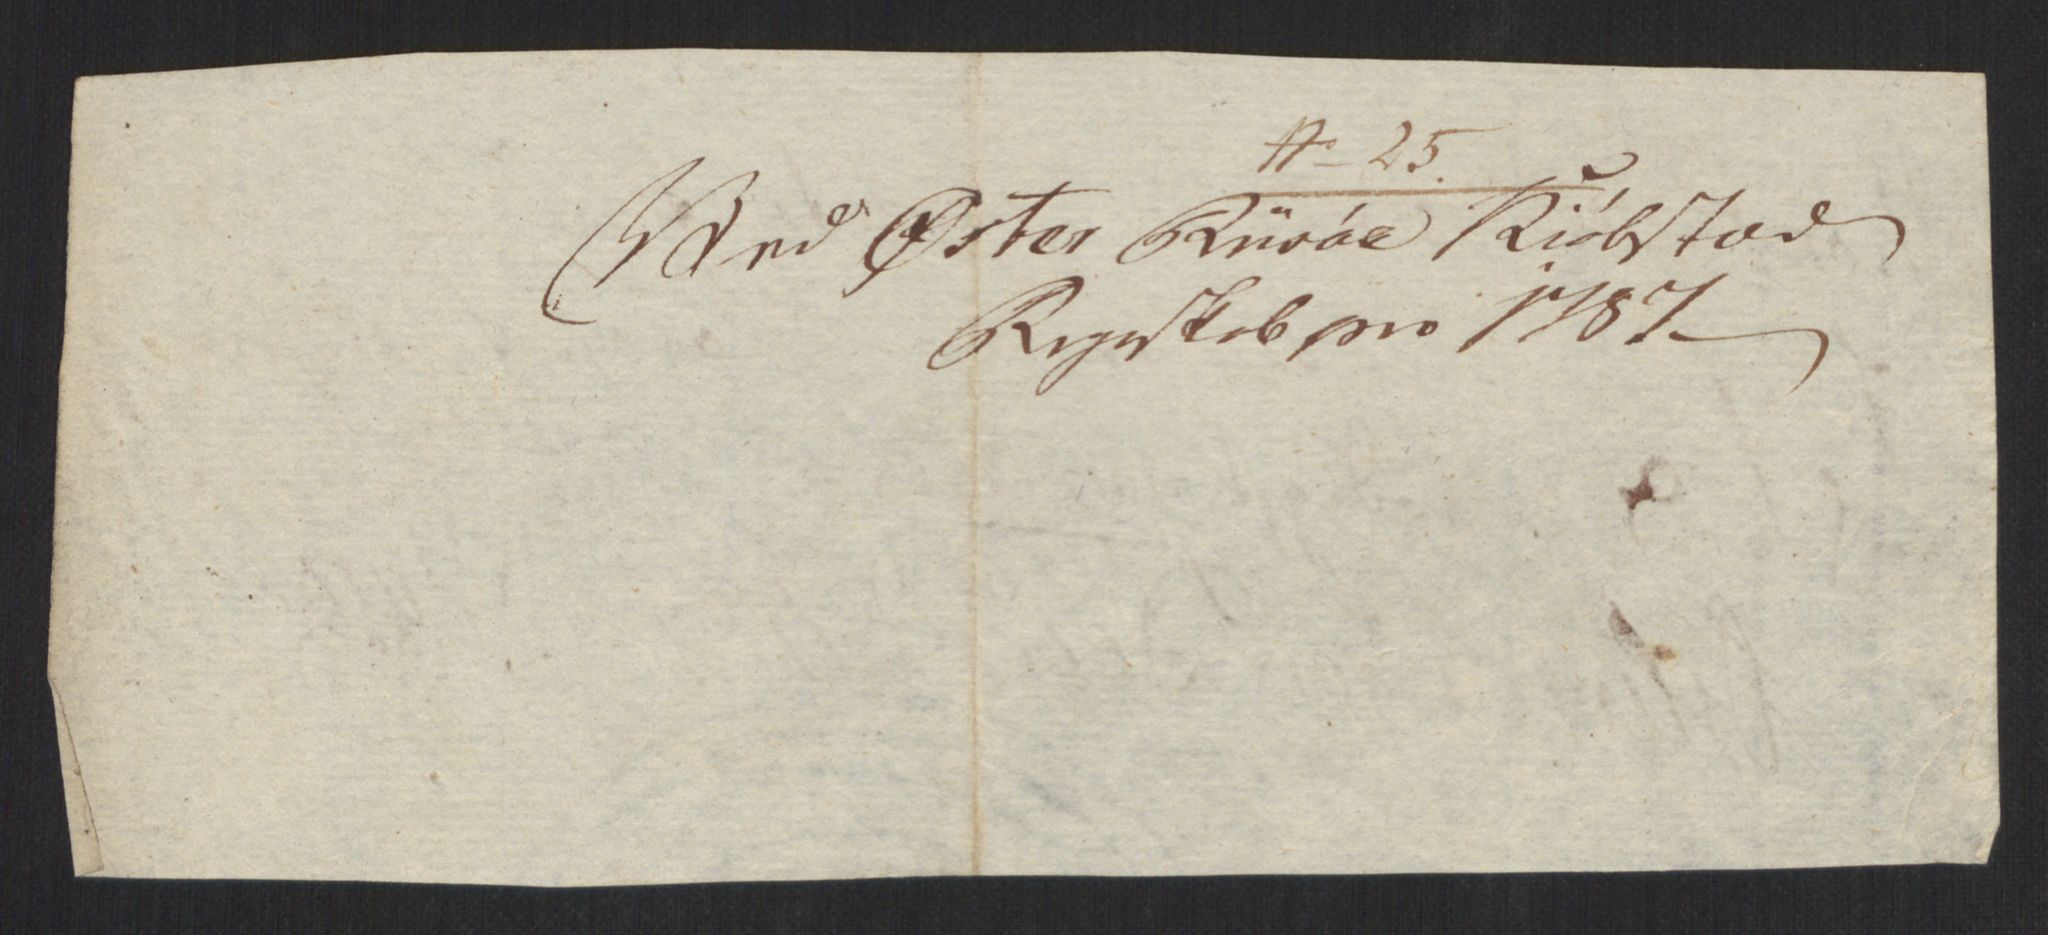 No 25.
Ved Øster Riisöer Kiöbstad
Regnskab pro 1787